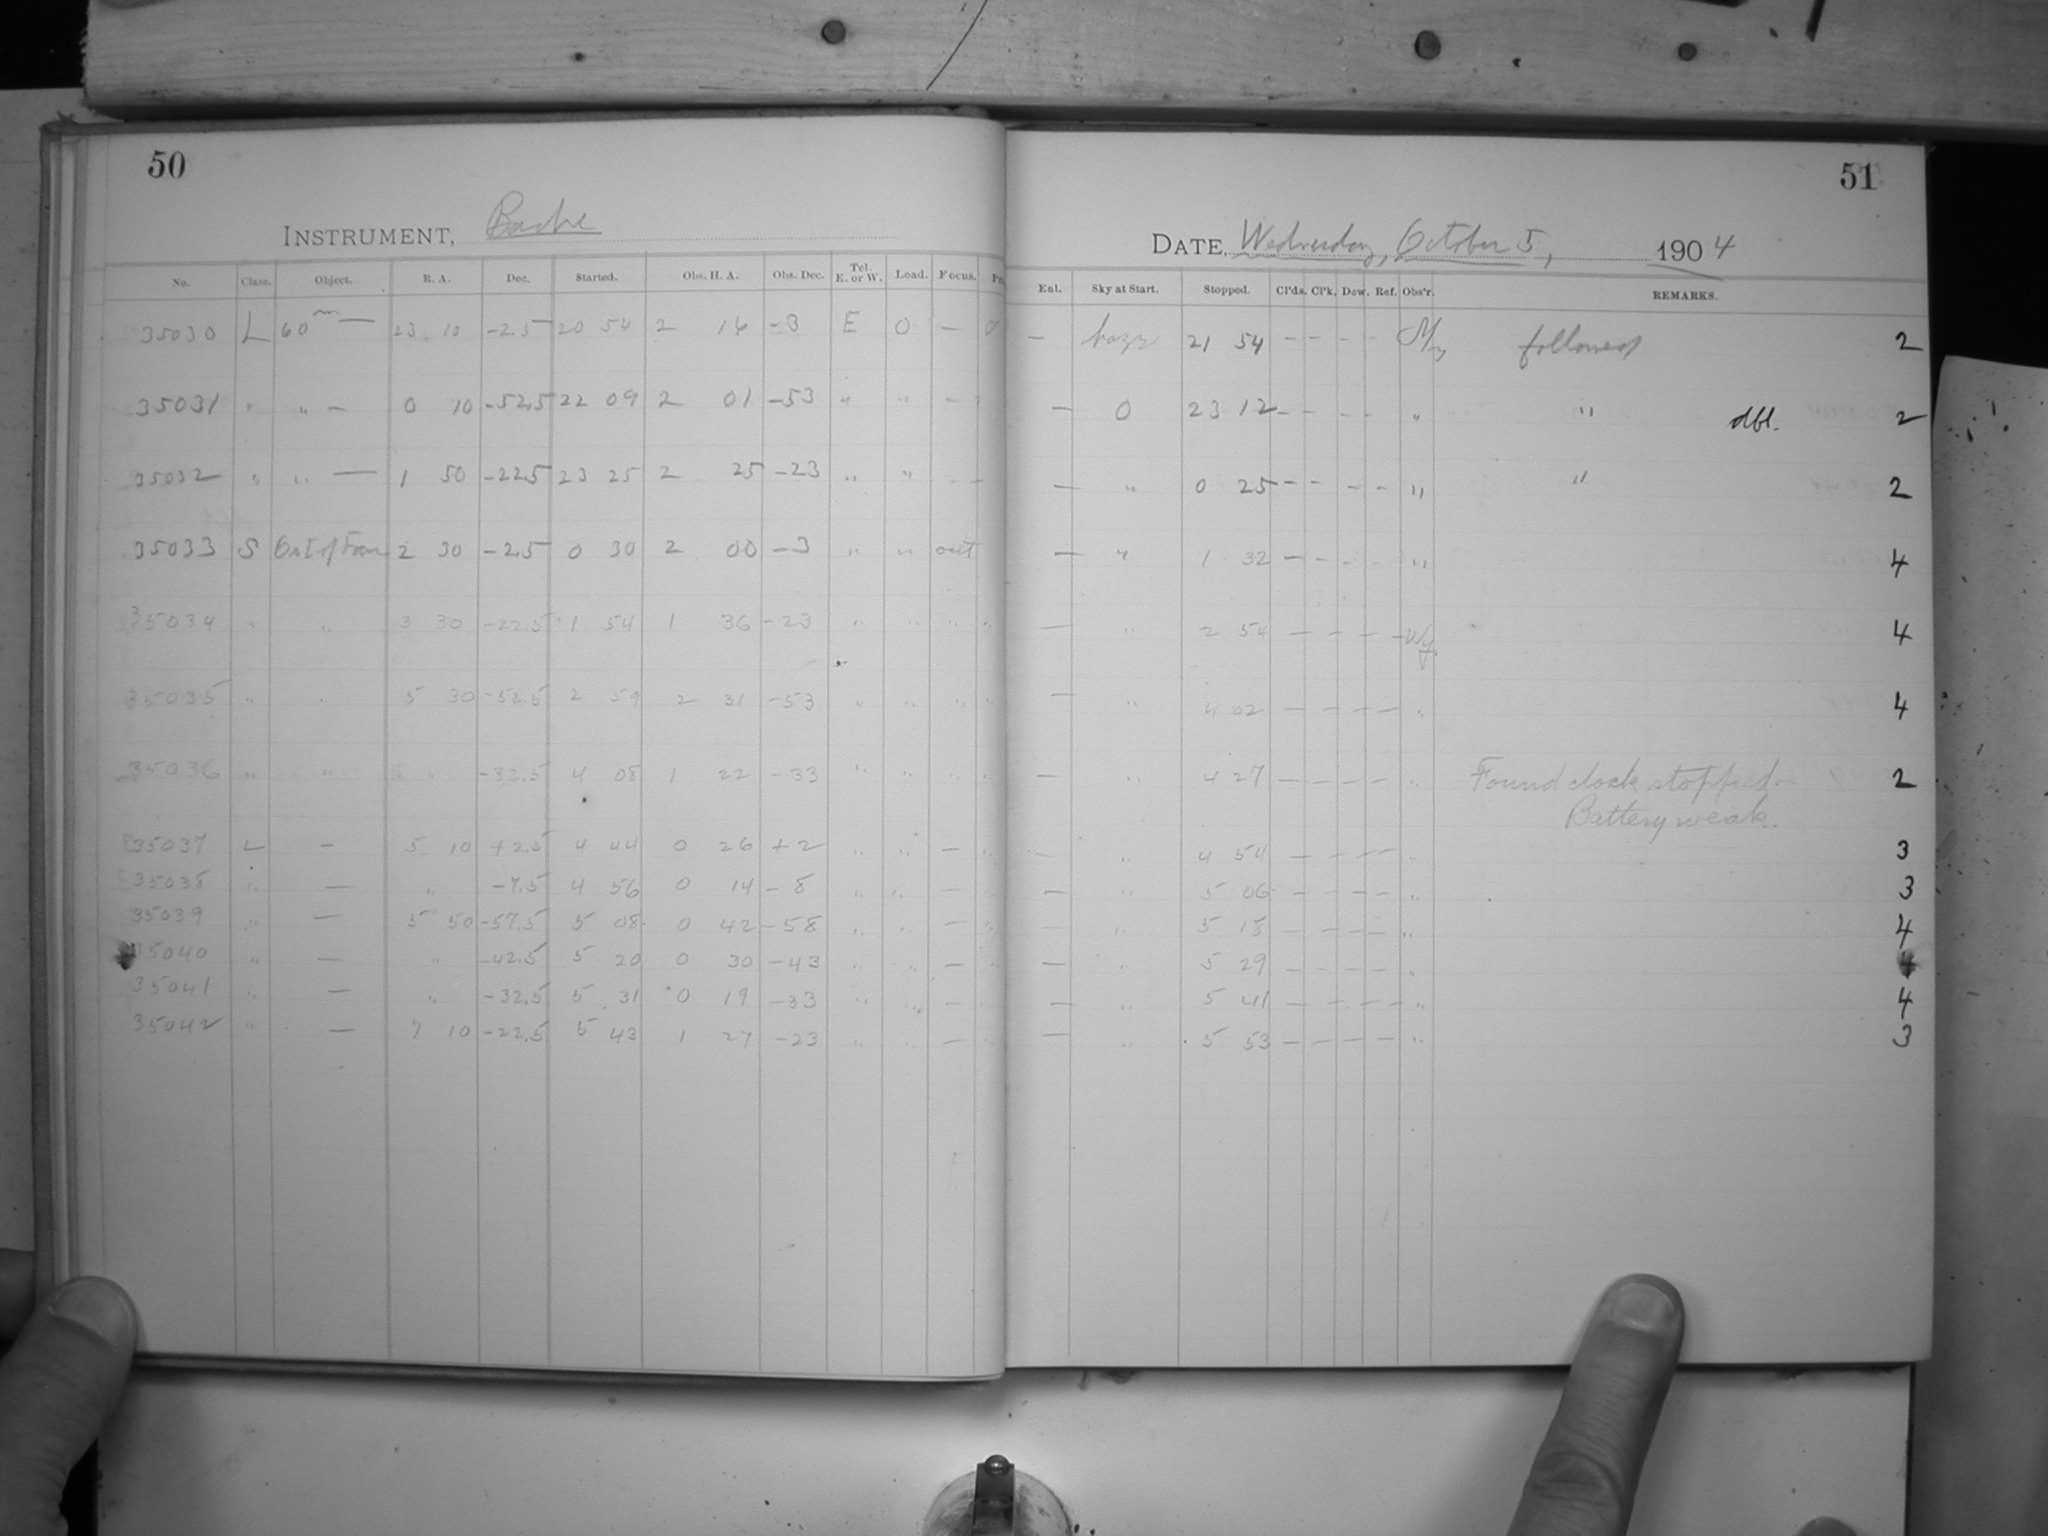 50
INSTRUMENT, Bache
No. Class. Object. R. A. Dec. Started. Obs. H. A. Obs. Dec. Tel. E. or W. Load. Focus.
35030 L 60m — 23 10 -2.5 20 54 2 16 -3 E 0 — 0
35031 " " — 0 10 -52.5 22 09 2 01 -53 " " —
35032 " " — 1 50 -22.5 23 25 2 25 -23 " " —
35033 S Out of Focus 2 30 -2.5 0 30 2 00 -3 " " out
35034 " " 3 30 -22.5 1 54 1 36 -23 " " " "
35035 " " 5 30 -52.5 2 59 2 31 -53 " " " "
35036 " " " " -32.5 4 08 1 22 -33 " " " "
35037 L — 5 10 +2.5 4 44 0 26 +2 " " — "
35038 " — " -7.5 4 56 0 14 -8 " " —
35039 " — 5 50 -57.5 5 08 0 42 -58 " " — "
35040 " — " -42.5 5 20 0 30 -43 " " — "
35041 " — " -32.5 5 31 0 19 -33 " " — "
35042 " — 7 10 -22.5 5 43 1 27 -23 " " — "
51
DATE, Wednesday, October 5, 1904
Enl. Sky at Start. Stopped. Cl'ds. Cl'k. Dew. Ref. Obs'r. REMARKS.
— hazy 21 54 — — — — followed 2
— 0 23 12 — — — — " " dbl. 2
— " 0 25 — — — — " " 2
— " 1 32 — — — — " 4
— " 2 54 — — — — Wy. 4
— " 4 02 — — — — " 4
— " 4 27 — — — — " Found clock stopped. 2
Battery weak.
— " 4 54 — — — — " 3
— " 5 06 — — — — " 3
— " 5 18 — — — — " 4
— " 5 29 — — — — " 4
— " 5 41 — — — — " 4
— " 5 53 — — — — " 3